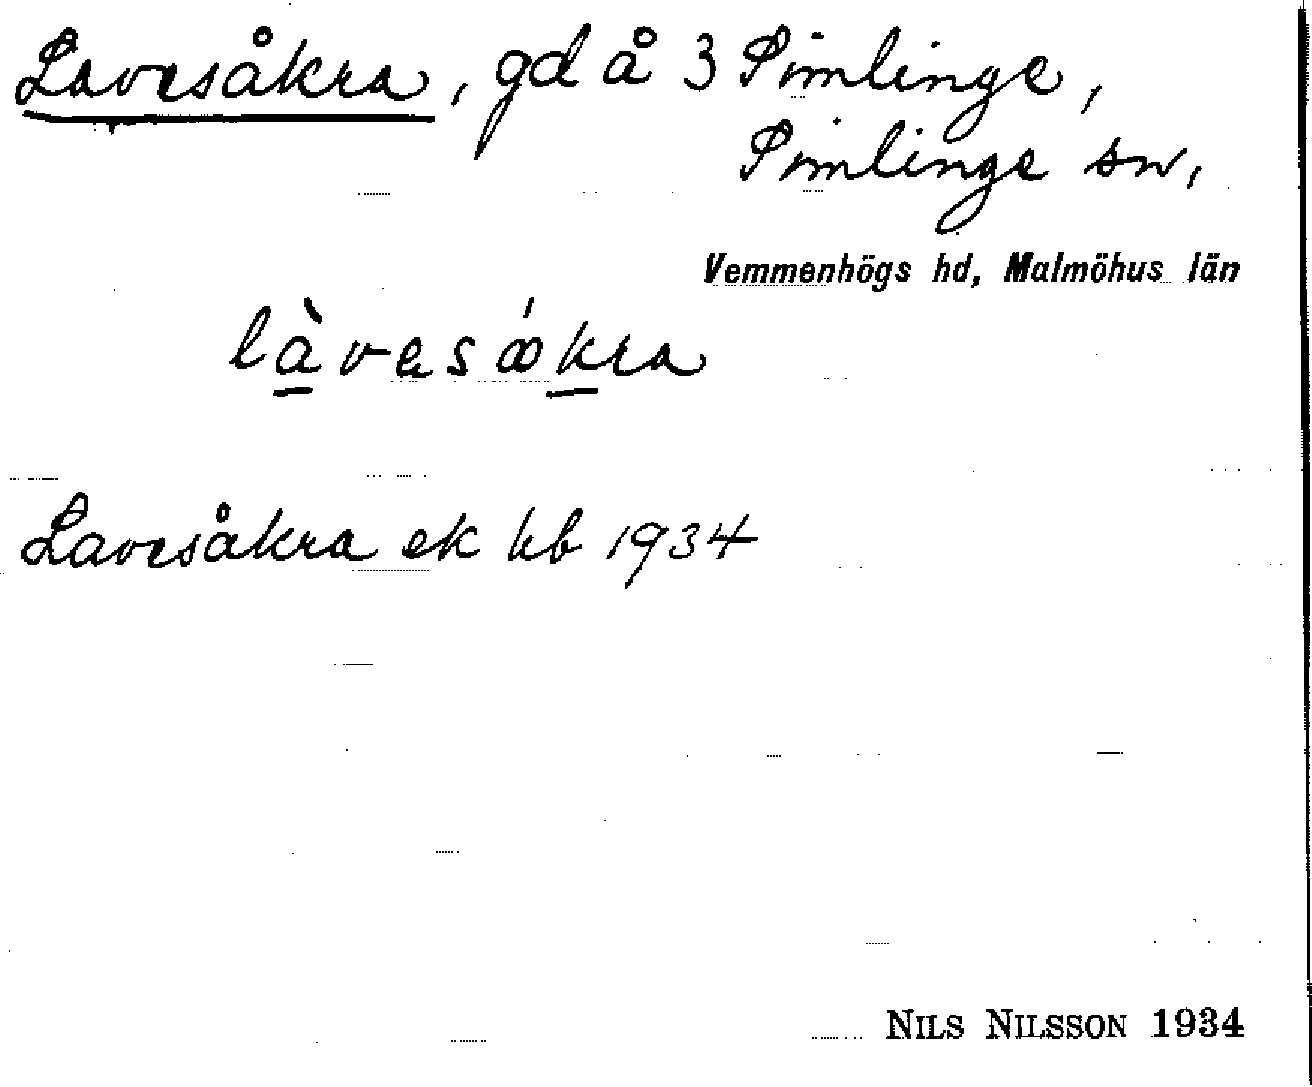 Lavesåkra, gd å 3 Simlinge,
Simlinge sn,
Vemmenhögs hd, Malmöhus län
làvesákra
Lavesåkra ek kb 1934
NILS NILSSON 1934